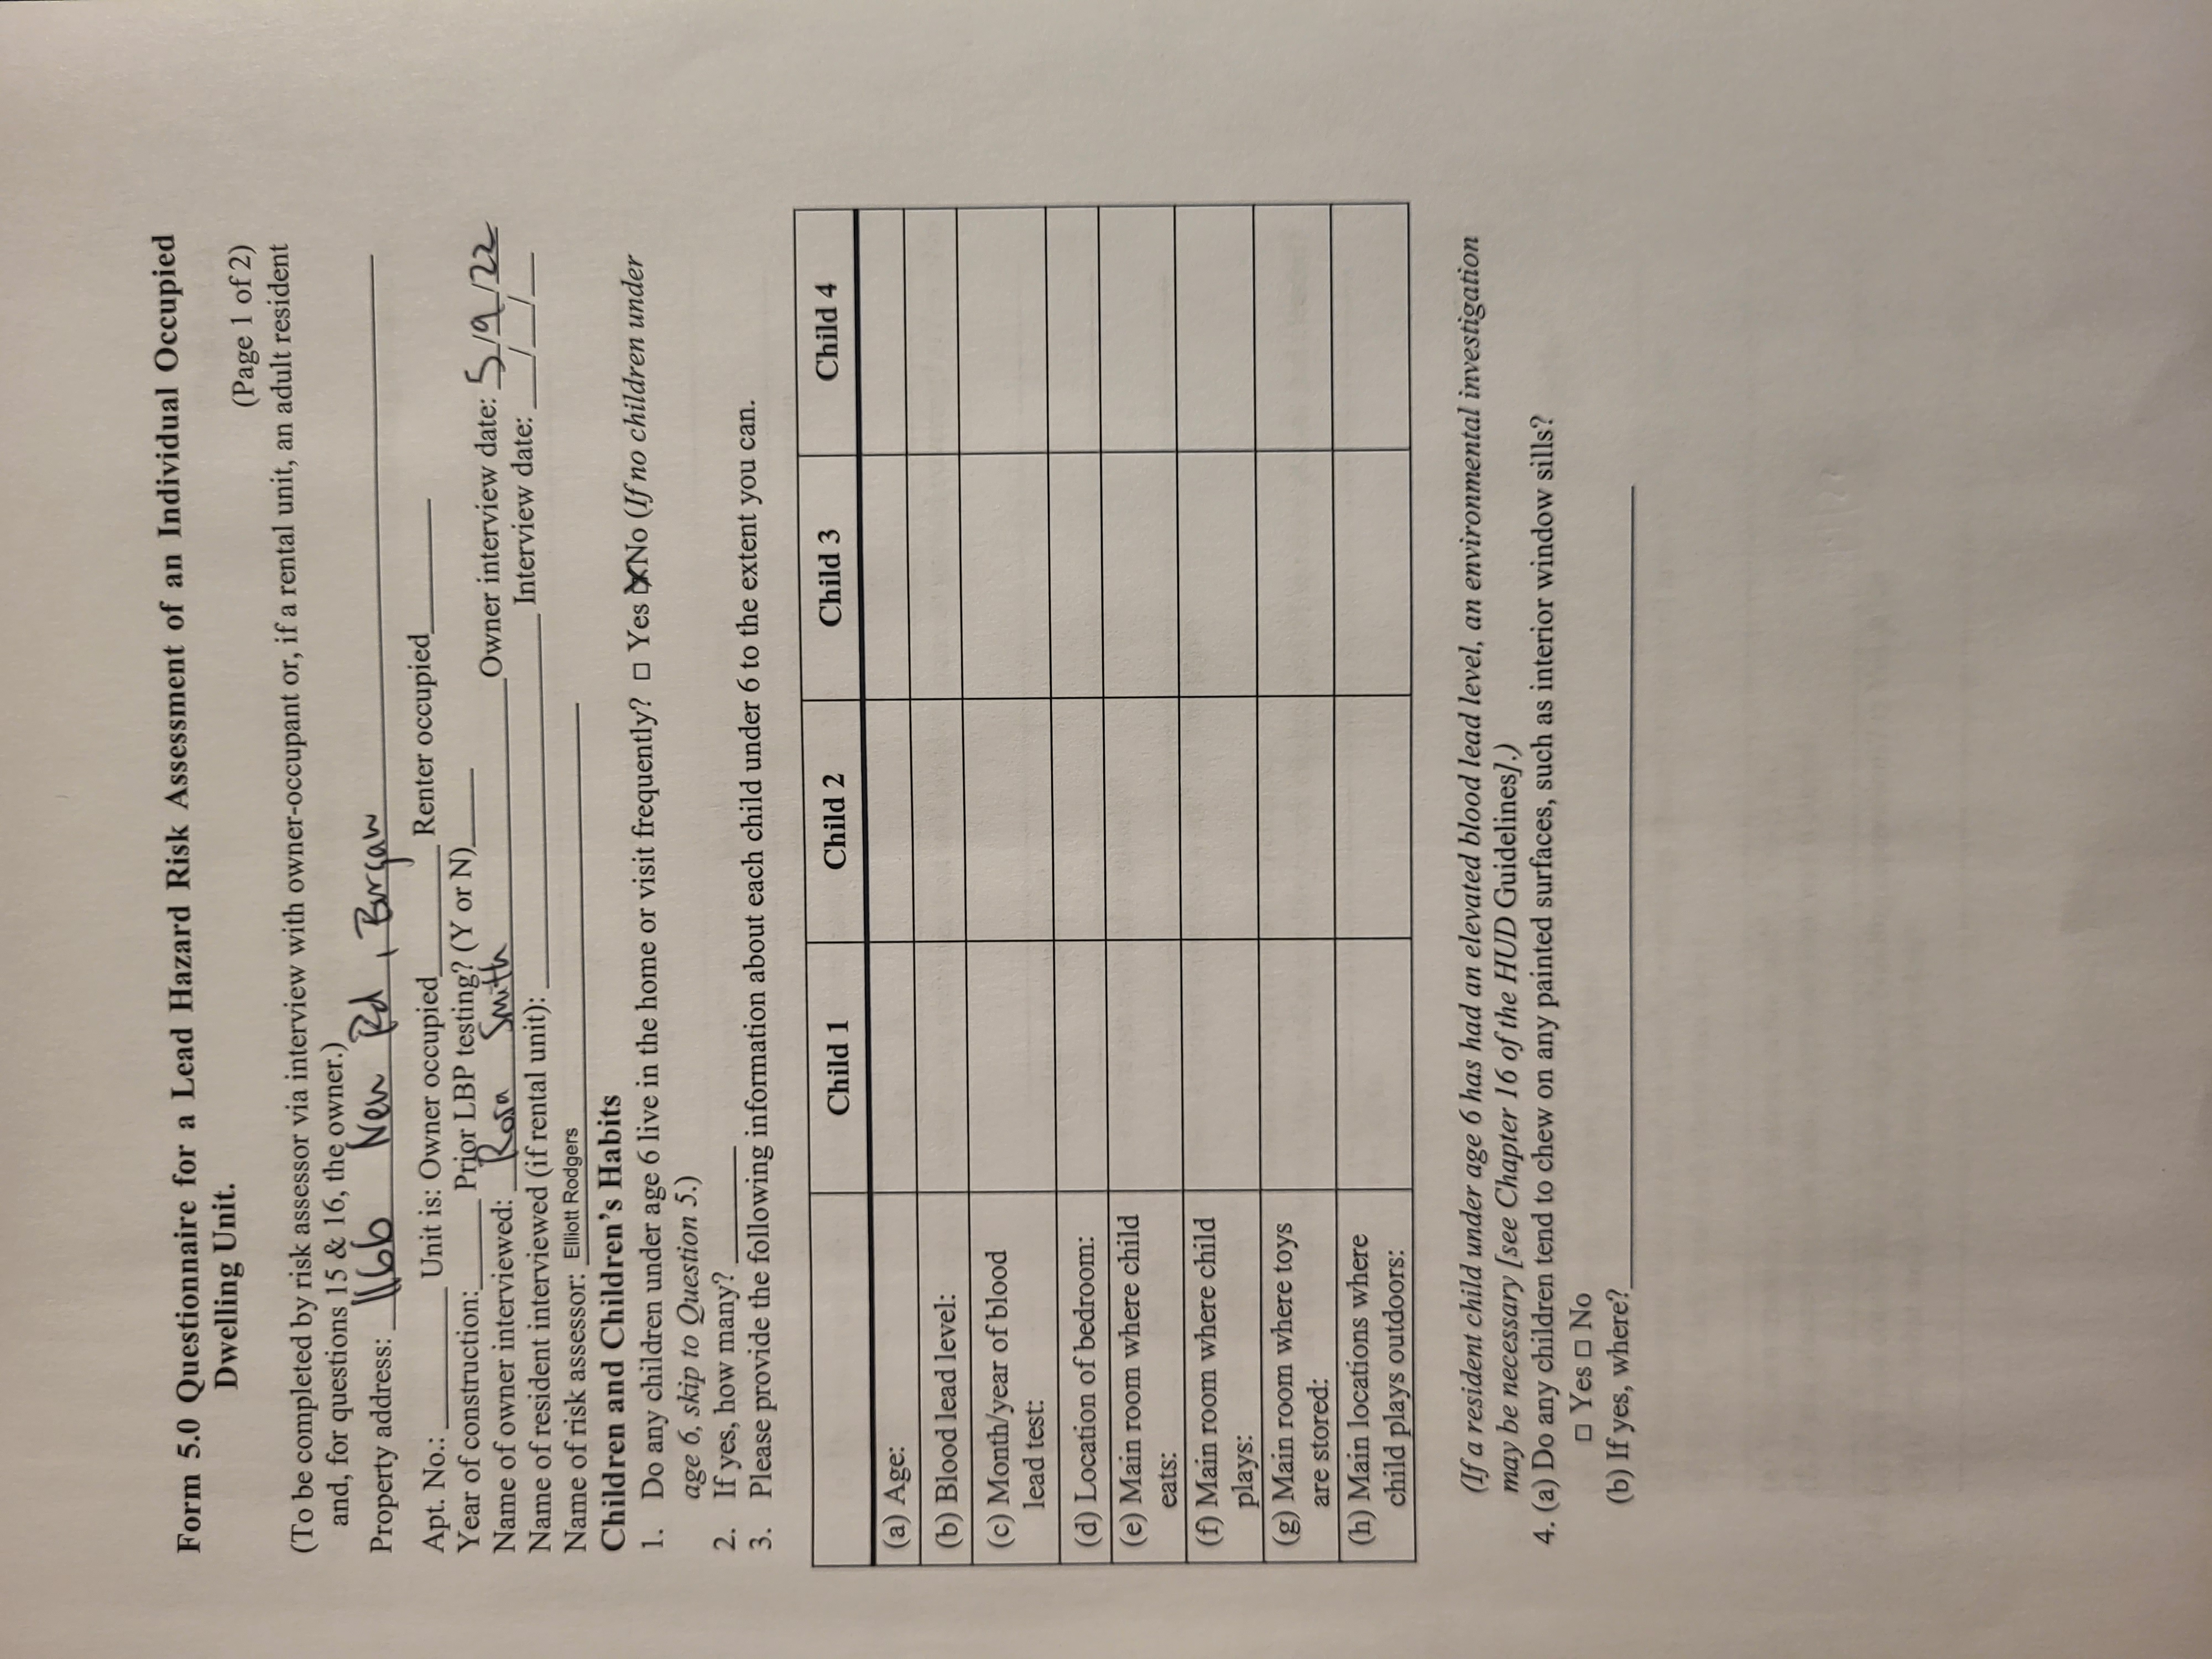 Form 5.0 Questionnaire for a Lead Hazard Risk Assessment of an Individual Occupied
Dwelling Unit.
(Page 1 of 2)
(To be completed by risk assessor via interview with owner-occupant or, if a rental unit, an adult resident
and, for questions 15 & 16, the owner.)
Property address: 1166 New Rd, Burgaw
Apt. No.: Unit is: Owner occupied Renter occupied
Year of construction: Prior LBP testing? (Y or N)
Name of owner interviewed: Rosa Smith Owner interview date: 5/9/22
Name of resident interviewed (if rental unit): Interview date: / /
Name of risk assessor: Elliott Rodgers
Children and Children's Habits
1. Do any children under age 6 live in the home or visit frequently? □ Yes ☒ No (If no children under
age 6, skip to Question 5.)
2. If yes, how many?
3. Please provide the following information about each child under 6 to the extent you can.
Child 1 Child 2 Child 3 Child 4
(a) Age:
(b) Blood lead level:
(c) Month/year of blood
lead test:
(d) Location of bedroom:
(e) Main room where child
eats:
(f) Main room where child
plays:
(g) Main room where toys
are stored:
(h) Main locations where
child plays outdoors:
(If a resident child under age 6 has had an elevated blood lead level, an environmental investigation
may be necessary [see Chapter 16 of the HUD Guidelines].)
4. (a) Do any children tend to chew on any painted surfaces, such as interior window sills?
□ Yes □ No
(b) If yes, where?